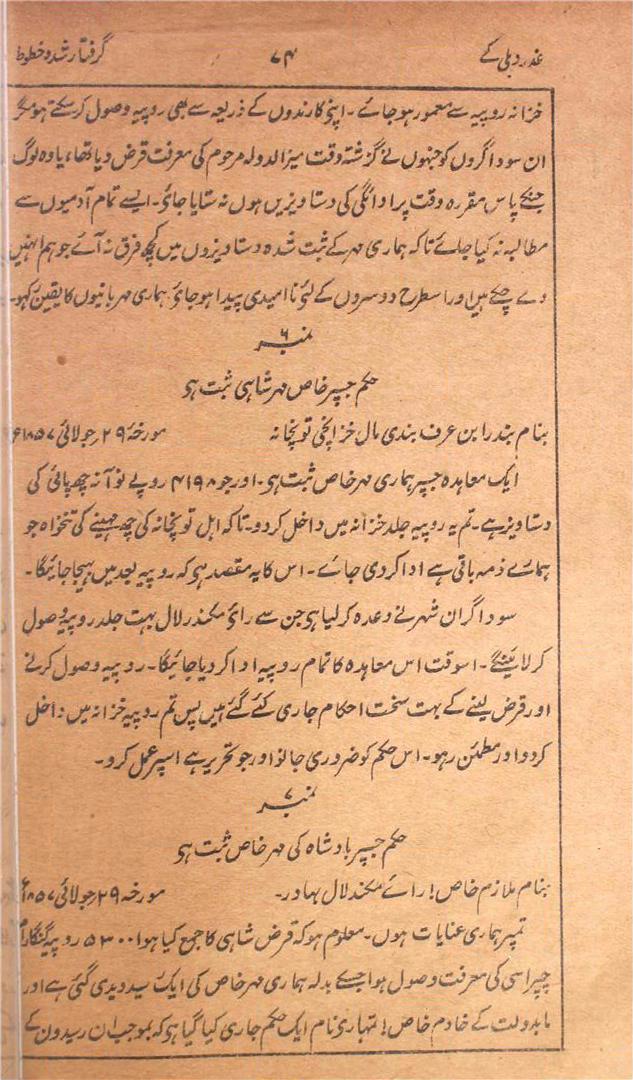 غدر دہلی کے ۷۴ گرفتار شدہ خطوط
خزانہ روپیہ سے معمور ہو جائے۔ اپنے کارندوں کے ذریعہ سے بھی روپیہ وصول کر سکتے ہو مگر
ان سوداگروں کو جنہوں نے گزشتہ وقت میرزا الدولہ مرحوم کی معرفت قرض دیا تھا، یا وہ لوگ
جنکے پاس مقررہ وقت پر ادائگی کی دستاویزیں ہوں نہ ستایا جائے۔ ایسے تمام آدمیوں سے
مطالبہ نہ کیا جائے تاکہ ہماری مہر کے ثبت شدہ دستاویزوں میں کچھ فرق نہ آئے جو ہم انہیں
دے چکے ہیں اور اسطرح دوسروں کے لئے نا امیدی پیدا ہو جائے ہماری مہربانیوں کا یقین رکہو۔
نمبر ۶
حکم جسپر خاص مہر شاہی ثبت ہے
بنام بندرابن عرف بندی مال خزانچی توپخانہ مورخہ ۲۹ جولائی ۱۸۵۷ء
ایک معاہدہ جسپر ہماری مہر خاص ثبت ہے۔ اور جو ۴۱۹۸ روپے نو آنہ چھ پائی کی
دستاویز ہے۔ تم یہ روپیہ جلد خزانہ میں داخل کر دو۔ تاکہ اہل توپخانہ کی چھ مہینے کی تنخواہ جو
ہمارے ذمہ باقی ہے ادا کر دی جائے۔ اس کا یہ مقصد ہے کہ روپیہ بعد میں بہیجا جائیگا۔
سوداگران شہر نے وعدہ کر لیا ہے جن سے رائے مکند لال بہت جلد روپیہ وصول
کر لائینگے۔ اسوقت اس معاہدہ کا تمام روپیہ ادا کر دیا جائیگا۔ روپیہ وصول کرنے
اور قرض لینے کے بہت سخت احکام جاری کئے گئے ہیں پس تم روپیہ خزانہ میں داخل
کر دو اور مطمئن رہو۔ اس حکم کو ضروری جانو اور جو تحریر ہے اسپر عمل کرو۔
نمبر ۷
حکم جسپر بادشاہ کی مہر خاص ثبت ہے
بنام ملازم خاص! رائے مکند لال بہادر۔ مورخہ ۲۹ جولائی ۱۸۵۷ء
تمپر ہماری عنایات ہوں۔ معلوم ہو کہ قرض شاہی کا جمع کیا ہوا ۵۳۰۰ روپیہ گنگا رام
چپراسی کی معرفت وصول ہوا جسکے بدلہ ہماری مہر خاص کی ایک رسید دیدی گئی ہے اور
مابدولت کے خادم خاص! تمہاری نام ایک حکم جاری کیا گیا ہے کہ بموجب ان رسیدون کے